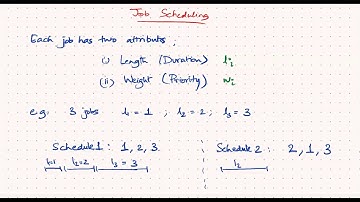 Job Scheduling
Each job has two attributes;
(i) Length (Duration) li
(ii) Weight (Priority) wi
e.g. 3 jobs l1 = 1 ; l2 = 2 ; l3 = 3
Schedule 1 : 1, 2, 3
l1=1 l2=2 l3 = 3
Schedule 2 : 2, 1, 3
l2